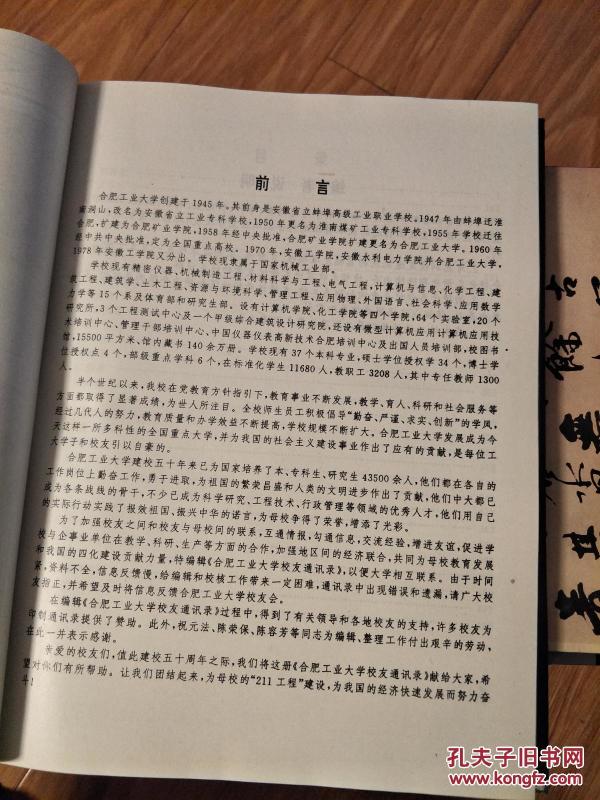 前 言
合肥工业大学创建于1945年。其前身是安徽省立蚌埠高级工业职业学校。1947年由蚌迁淮
南洞山,改名为安徽省立工业专科学校,1950年更名为淮南煤矿工业专科学校,1955年学校迁往
合肥,扩建为合肥矿业学院,1958年经中央批准,合肥矿业学院扩建更名为合肥工业大学。1960年
经中共中央批准,定为全国重点高校。1970年,安徽工学院,安徽水利电力学院并合肥工业大学,
1978年安徽工学院又分出。学校现隶属于国家机械工业部。
学校现有精密仪器、机械制造工程、材料科学与工程、电气工程、计算机与信息、化学工程、建
筑工程、建筑学、土木工程、资源与环境科学、管理工程、应用物理、外国语言、社会科学、应用数学
力学等15个系及体育部和研究生部。设有计算机学院、化工学院等四个学院,64个实验室,20个
研究所,3个工程测试中心及一个甲级综合建筑设计研究院,还设有微型计算机应用计算机应用技
术培训中心、管理干部培训中心、中国仪器仪表高新技术合肥培训中心及出国人员培训部,校图书
馆,15500平方米、馆内藏书140余万册。学校现有37个本科专业,硕士学位授权学34个,博士学
位授权点4个,部级重点学科6个,在标准化学生11680人,教职工3208人,其中专任教师1300
人。
半个世纪以来,我校在党教育方针指引下,教育事业不断发展,教学、育人、科研和社会服务等
方面都取得了显著成绩,为世人所注目。全校师生员工积极倡导“勤奋、严谨、求实、创新”的学风,
经过几代人的努力,教育质量和办学效益不断提高,学校规模不断扩大。合肥工业大学发展成为今
天这样一所多科性的全国重点大学,并为我国的社会主义建设事业作出了应有的贡献,是每位工
大学子和校友引以自豪的。
合肥工业大学建校五十年来已为国家培养了本、专科生、研究生43500余人,他们都在各自的
工作岗位上勤奋工作,勇于进取,为祖国的繁荣昌盛和人类的文明进步作出了贡献,他们中大都已
成为各条战线的骨干,不少已成为科学研究、工程技术、行政管理等领域的优秀人才,他们用自己
的实际行动实践了报效祖国、振兴中华的诺言,为母校争得了荣誉,增添了光彩。
为了加强校友之间和校友与母校间的联系,互通情报,勾通信息,交流经验,增进友谊,促进学
校与企事业单位在教学、科研、生产等方面的合作,加强地区间的经济联合,共同为母校教育发展
和我国的四化建设贡献力量,特编辑《合肥工业大学校友通讯录》,以便大学相互联系。由于时间
紧,资料不全,信息反馈慢,给编辑和校核工作带来一定困难,通讯录中出现错误和遗漏,请广大校
友指正,并希望及时将信息反馈合肥工业大学校友会。
在编辑《合肥工业大学校友通讯录》过程中,得到了有关领导和各地校友的支持,许多校友为
印制通讯录提供了赞助。此外,祝元法、陈荣保、陈容芳等同志为编辑、整理工作付出艰辛的劳动,
在此一并表示感谢。
亲爱的校友们,值此建校五十周年之际,我们将这册《合肥工业大学校友通讯录》献给大家,希
望对你们有所帮助。让我们团结起来,为母校的“211工程”建设,为我国的经济快速发展而努力奋
斗!
孔夫子旧书网
www.kongfz.com